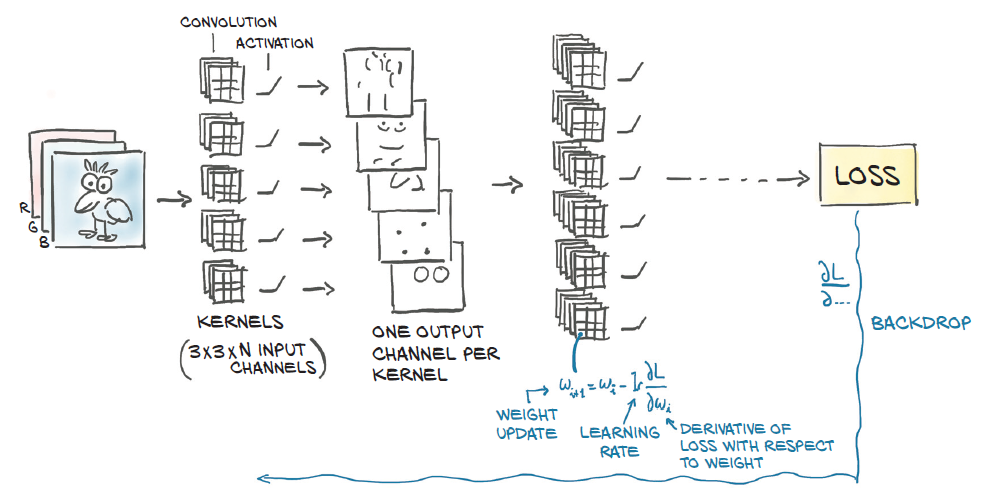 CONVOLUTION
ACTIVATION
R
G
B
KERNELS
(3X3XN INPUT
CHANNELS)
ONE OUTPUT
CHANNEL PER
KERNEL
LOSS
∂L
∂....
BACKDROP
ω_{i+1} = ω_i - lr ∂L
∂ω_i
WEIGHT
UPDATE
LEARNING
RATE
DERIVATIVE OF
LOSS WITH RESPECT
TO WEIGHT